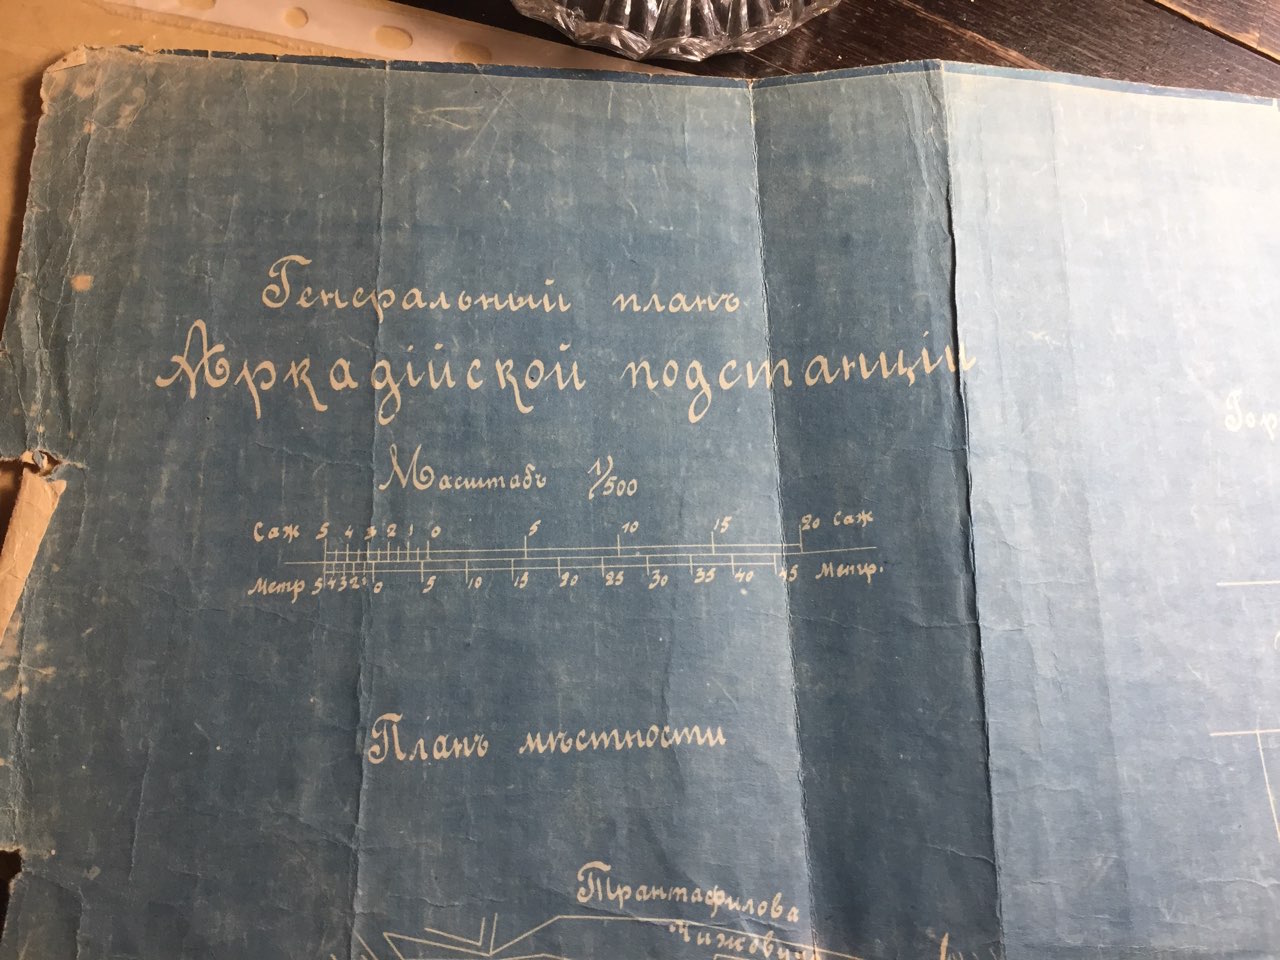 Генеральный планъ
Аркадійской подстанціи
Масштабъ 1/500
Саж 5 4 3 2 1 0 5 10 15 20 Саж
Метр 5 4 3 2 1 0 5 10 15 20 25 30 35 40 45 Метр.
Планъ мѣстности
Трантафилова